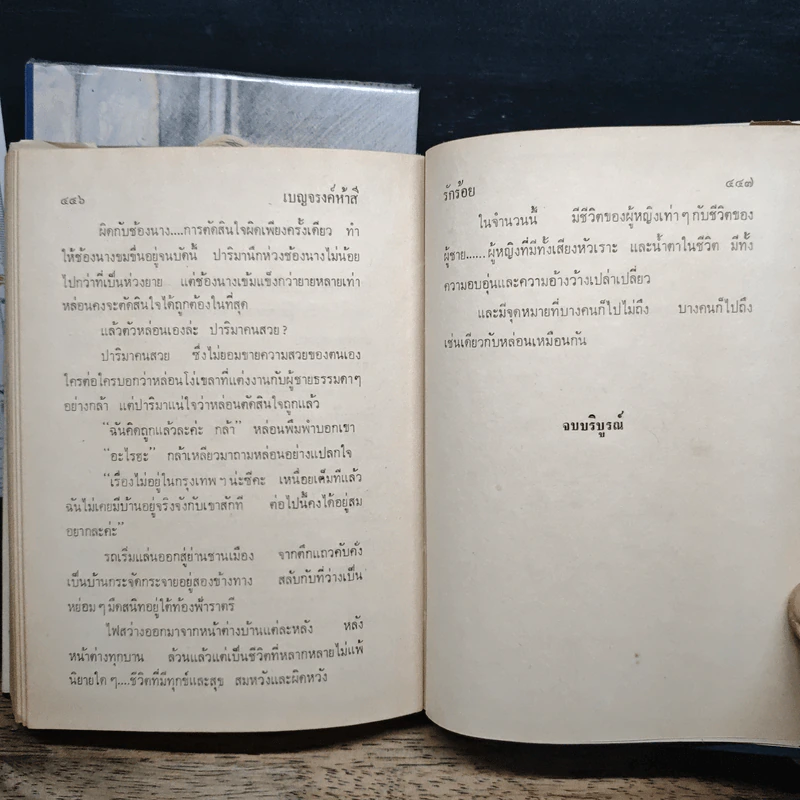 ๔๔๖ เบญจรงค์ห้าสี
ผิดกับช้องนาง....การตัดสินใจผิดเพียงครั้งเดียว ทำ
ให้ช้องนางขมขื่นอยู่จนบัดนี้ ปาริมานึกห่วงช้องนางไม่น้อย
ไปกว่าที่เป็นห่วงยาย แต่ช้องนางเข้มแข็งกว่ายายหลายเท่า
หล่อนคงจะตัดสินใจได้ถูกต้องในที่สุด
แล้วตัวหล่อนเองล่ะ ปาริมาคนสวย?
ปาริมาคนสวย ซึ่งไม่ยอมขายความสวยของตนเอง
ใครต่อใครบอกว่าหล่อนโง่เขลาที่แต่งงานกับผู้ชายธรรมดาๆ
อย่างกล้า แต่ปาริมาแน่ใจว่าหล่อนตัดสินใจถูกแล้ว
“ฉันคิดถูกแล้วละค่ะ กล้า” หล่อนพึมพำบอกเขา
“อะไรฮะ” กล้าเหลียวมาถามหล่อนอย่างแปลกใจ
“เรื่องไม่อยู่ในกรุงเทพฯน่ะซีคะ เหนื่อยเต็มทีแล้ว
ฉันไม่เคยมีบ้านอยู่จริงจังกับเขาสักที ต่อไปนี้คงได้อยู่สม
อยากละค่ะ”
รถเริ่มแล่นออกสู่ย่านชานเมือง จากตึกแถวคับคั่ง
เป็นบ้านกระจัดกระจายอยู่สองข้างทาง สลับกับที่ว่างเป็น
หย่อมๆมืดสนิทอยู่ใต้ท้องฟ้าราตรี
ไฟสว่างออกมาจากหน้าต่างบ้านแต่ละหลัง หลัง
หน้าต่างทุกบาน ล้วนแล้วแต่เป็นชีวิตที่หลากหลายไม่แพ้
นิยายใดๆ....ชีวิตที่มีทุกข์และสุข สมหวังและผิดหวัง
รักร้อย ๔๔๗
ในจำนวนนี้ มีชีวิตของผู้หญิงเท่าๆกับชีวิตของ
ผู้ชาย......ผู้หญิงที่มีทั้งเสียงหัวเราะ และน้ำตาในชีวิต มีทั้ง
ความอบอุ่นและความอ้างว้างเปล่าเปลี่ยว
และมีจุดหมายที่บางคนก็ไปไม่ถึง บางคนก็ไปถึง
เช่นเดียวกับหล่อนเหมือนกัน
จบบริบูรณ์